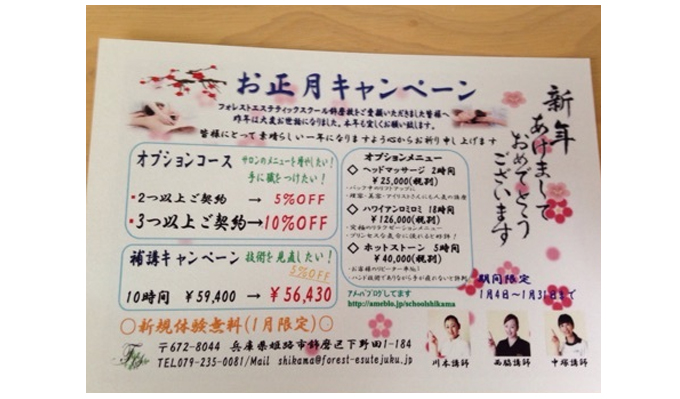 お正月キャンペーン
フォレストエステティックスクール飾磨校をご愛顧いただきました皆様へ
昨年は大変お世話になりました。本年も宜しくお願い致します。
皆様にとって素晴らしい一年になりますよう心からお祈り申し上げます
新年
あけまして
おめでとう
ございます
オプションコース
サロンのメニューを増やしたい!
手に職をつけたい!
・2つ以上ご契約 → 5%OFF
・3つ以上ご契約→10%OFF
補講キャンペーン
技術を見直したい!
5%OFF
10時間 ¥59,400 → ¥56,430
オプションメニュー
◇ヘッドマッサージ 2時間
¥25,000(税別)
・バックサロリフトアップに
・理容・美容・アイリストさんにも人気の講座
◇ハワイアンロミロミ 18時間
¥126,000(税別)
・究極のリラクゼーションメニュー
・プリンセスな気分に浸れると好評!
◇ホットストーン 5時間
¥40,000(税別)
・お客様のリピーター率No1
・ハンド技術でありながら手が疲れないで評判
アメーバブログしてます
http://ameblo.jp/schoolshikama
期間限定
1月4日〜1月31日まで
○新規体験無料(1月限定)○
〒672-8044 兵庫県姫路市飾磨区下野田1-184
TEL079-235-0081/Mail shikama@forest-esutejuku.jp
川本講師
西脇講師
中塚講師